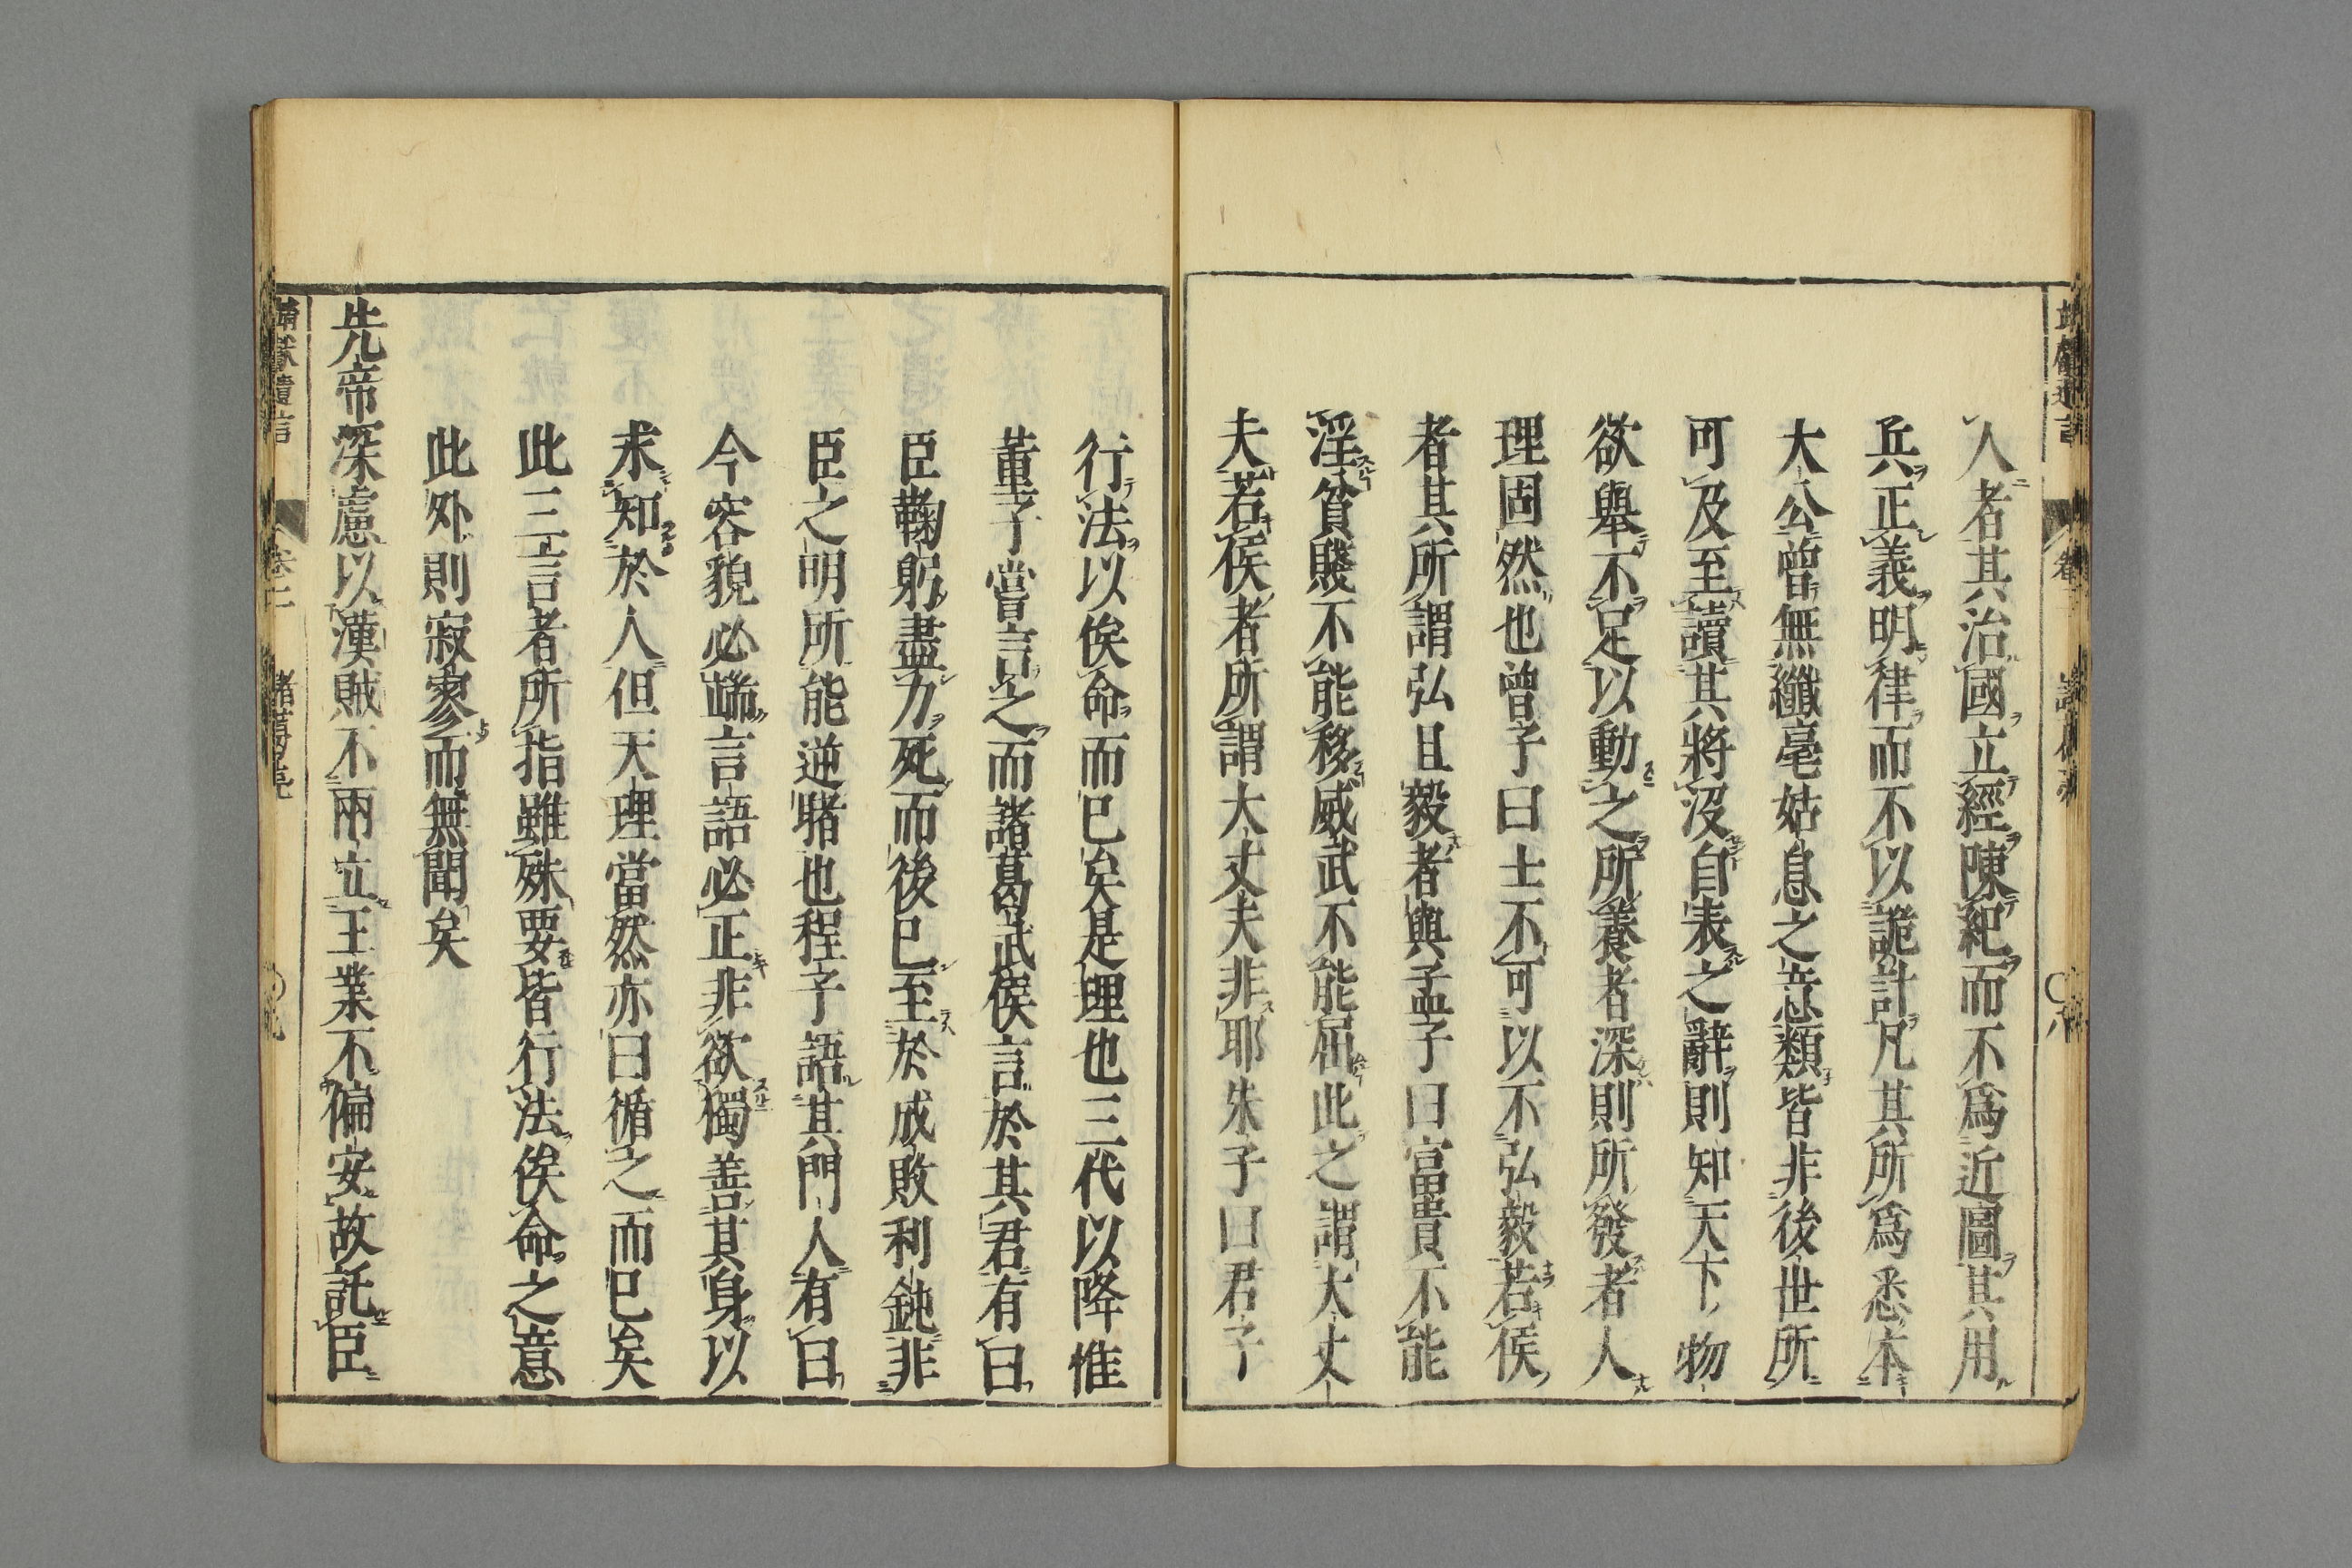 人者其治國立經陳紀而不爲近圖其用
兵正義明律而不以詭計凡其所爲悉本
大公曾無纖毫姑息之意類皆非後世所
可及至讀其將沒自表之辭則知天下物
欲舉不足以動之所養者深則所發者人
理固然也曾子曰士不可以不弘毅若侯
者其所謂弘且毅者與孟子曰富貴不能
淫貧賤不能移威武不能屈此之謂大丈
夫若侯者所謂大丈夫非耶朱子曰君子
行法以俟命而已矣是理也三代以降惟
董子嘗言之而諸葛武侯言於其君有曰
臣鞠躬盡力死而後已至於成敗利鈍非
臣之明所能逆睹也程子語其門人有曰
今容貌必端言語必正非欲獨善其身以
求知於人但天理當然亦曰循之而已矣
此三言者所指雖殊要皆行法俟命之意
此外則寂寥而無聞矣
先帝深慮以漢賊不兩立王業不偏安故託臣
靖獻遺言 卷二 諸葛亮